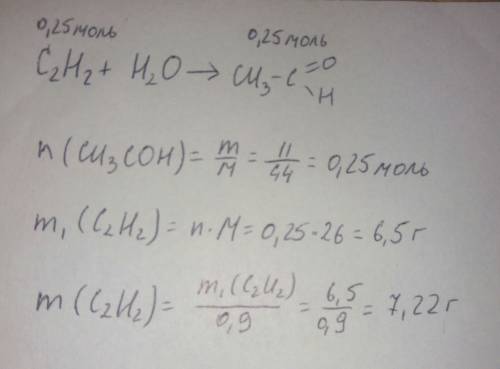 0,25моль 0,25моль
C₂H₂ + H₂O → CH₃-C=O
\H
n(CH₃COH) = m/M = 11/44 = 0,25моль
m₁(C₂H₂) = n·M = 0,25·26 = 6,5г
m(C₂H₂) = m₁(C₂H₂)/0,9 = 6,5/0,9 = 7,22г